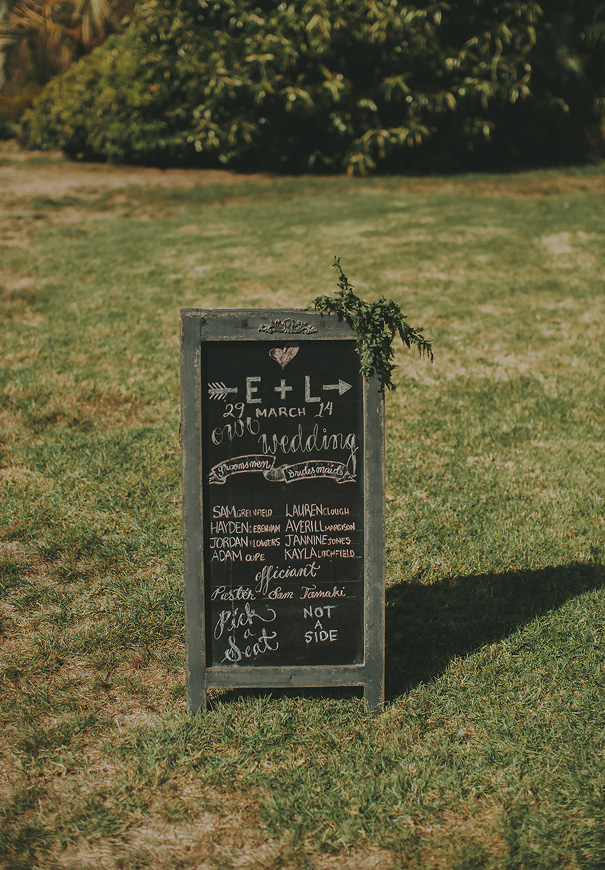 E + L
29 MARCH 14
our wedding
groomsmen Bridesmaids
SAM GREENFIELD LAUREN CLOUGH
HAYDEN EBENHAM AVERILL MARDISON
JORDAN FLOWERS JANNINE JONES
ADAM COPE KAYLA LITCHFIELD
officiant
Pastor Sam Tamaki
Pick NOT
a A
Seat SIDE